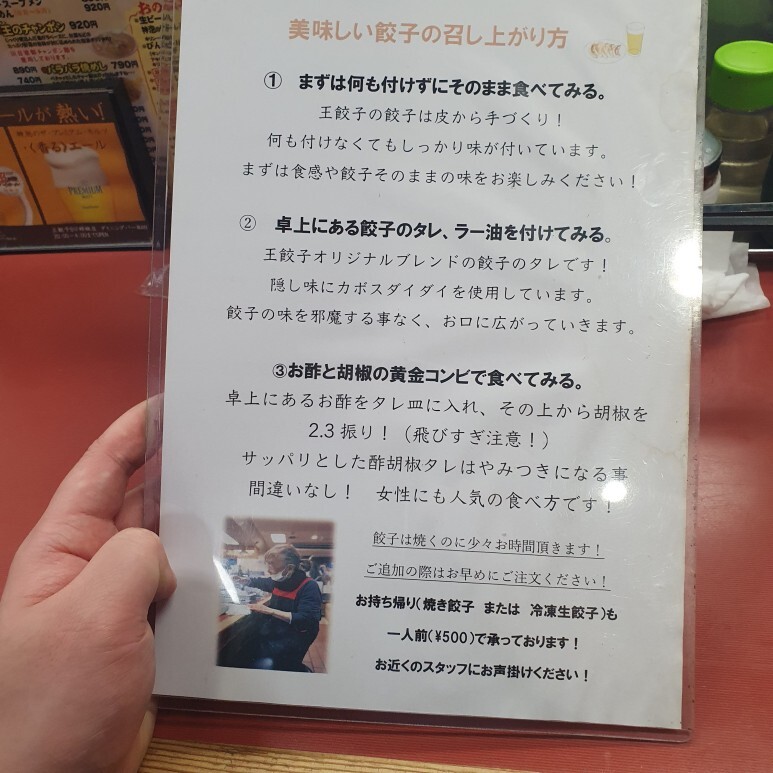 美味しい餃子の召し上がり方
① まずは何も付けずにそのまま食べてみる。
王餃子の餃子は皮から手づくり！
何も付けなくてもしっかり味が付いています。
まずは食感や餃子そのままの味をお楽しみください！
② 卓上にある餃子のタレ、ラー油を付けてみる。
王餃子オリジナルブレンドの餃子のタレです！
隠し味にカボスダイダイを使用しています。
餃子の味を邪魔する事なく、お口に広がっていきます。
③お酢と胡椒の黄金コンビで食べてみる。
卓上にあるお酢をタレ皿に入れ、その上から胡椒を
2.3振り！（飛びすぎ注意！）
サッパリとした酢胡椒タレはやみつきになる事
間違いなし！ 女性にも人気の食べ方です！
餃子は焼くのに少々お時間頂きます！
ご追加の際はお早めにご注文ください！
お持ち帰り（焼き餃子 または 冷凍生餃子）も
一人前（¥500）で承っております！
お近くのスタッフにお声掛けください！
920円
王のチャンポン 920円
890円
740円
790円
ールが熱い！
〈香る〉エール
PREMIUM